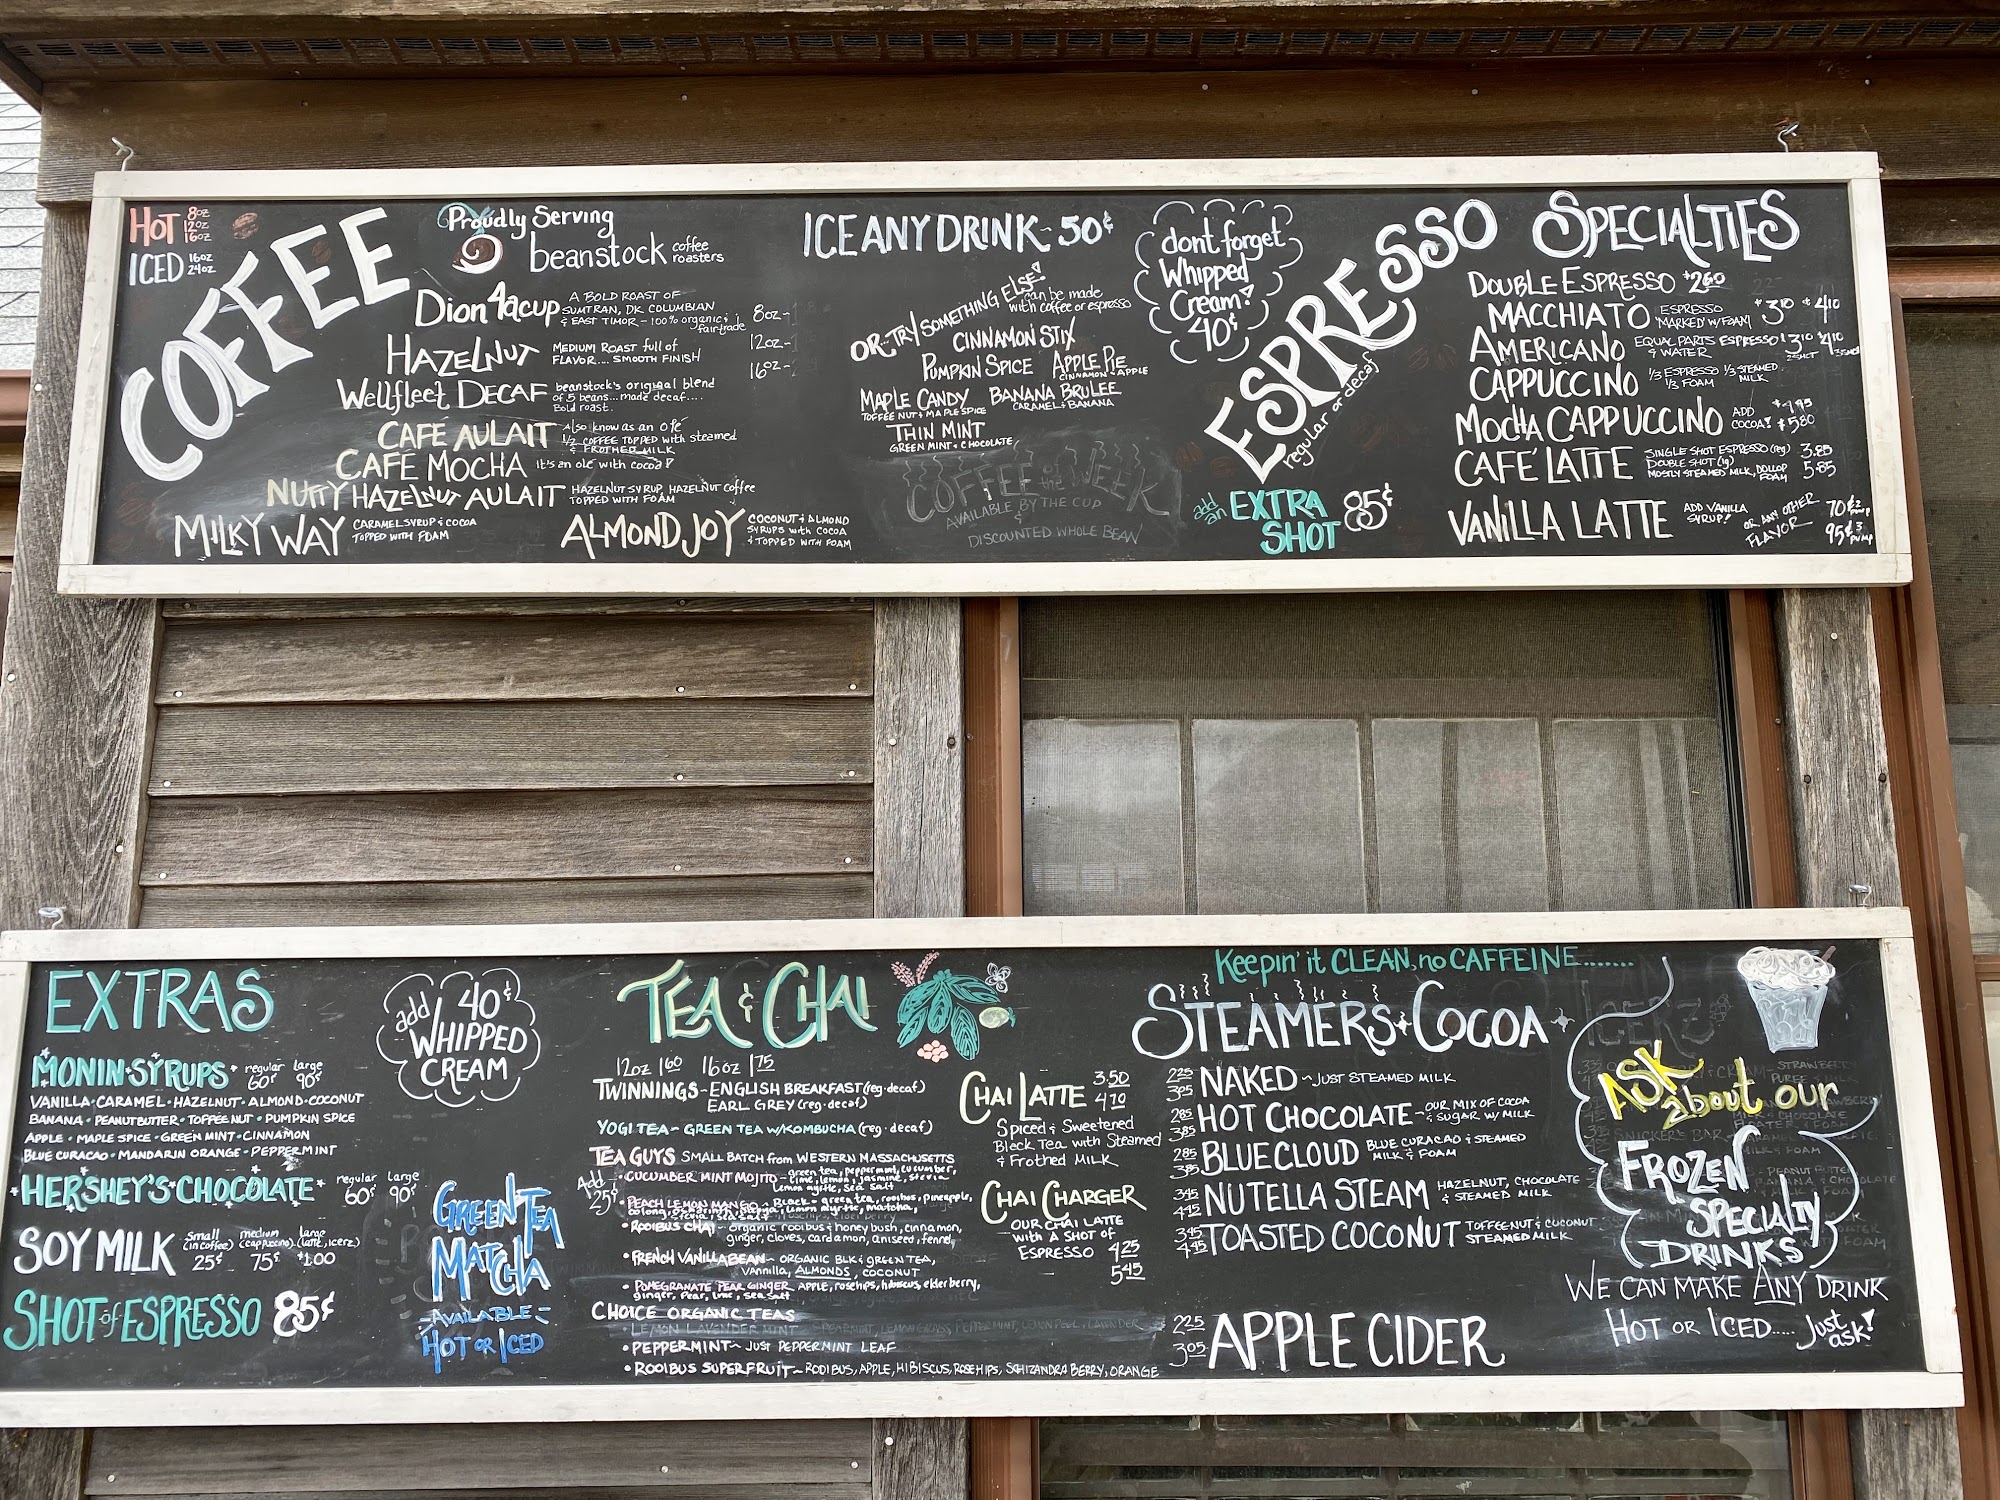 HOT 8oz 12oz 16oz
ICED 16oz 24oz
COFFEE
Proudly Serving
beanstock coffee roasters
Dion 4acup A BOLD ROAST OF
SUMTRAN, DK COLUMBIAN
& EAST TIMOR - 100% organic & fair trade
8oz-
HAZELNUT MEDIUM ROAST full of
FLAVOR.... SMOOTH FINISH
12oz-
16oz-
Wellfleet DECAF beanstock's original blend
of 5 beans...made decaf....
Bold roast.
CAFE AULAIT Also know as an Olé
1/2 COFFEE TOPPED with steamed
& FROTHED MILK
CAFÉ MOCHA It's an olé with cocoa!
NUTTY HAZELNUT AULAIT HAZELNUT SYRUP, HAZELNUT Coffee
TOPPED WITH FOAM
MILKY WAY CARAMEL SYRUP & COCOA
TOPPED WITH FOAM
ALMOND JOY COCONUT & ALMOND
SYRUPS with COCOA
& TOPPED WITH FOAM
ICE ANY DRINK - 50¢
OR...TRY SOMETHING ELSE!
can be made
with coffee or espresso
CINNAMON STIX
PUMPKIN SPICE APPLE PIE
CINNAMON & APPLE
MAPLE CANDY BANANA BRULEE
TOFFEE NUT & MAPLE SPICE CARAMEL & BANANA
THIN MINT
GREEN MINT & CHOCOLATE
COFFEE of the WEEK
AVAILABLE BY THE CUP
&
DISCOUNTED WHOLE BEAN
dont forget
Whipped
Cream!
40¢
ESPRESSO
regular or decaf
add an EXTRA
SHOT 85¢
SPECIALTIES
DOUBLE ESPRESSO $2.60
MACCHIATO ESPRESSO
'MARKED' W/FOAM $3.10 $4.10
AMERICANO EQUAL PARTS ESPRESSO
& WATER 3.10 4.10
CAPPUCCINO 1/3 ESPRESSO 1/3 STEAMED MILK
1/3 FOAM
MOCHA CAPPUCCINO ADD
COCOA! $4.95 $5.80
CAFÉ LATTE SINGLE SHOT ESPRESSO (reg) 3.85
DOUBLE SHOT (lg) 5.85
MOSTLY STEAMED MILK, DOLLOP FOAM
VANILLA LATTE ADD VANILLA
SYRUP! OR ANY OTHER
FLAVOR 70¢ 2 pump
95¢ 3 pump
EXTRAS
MONIN SYRUPS regular 60¢ large 90¢
VANILLA • CARAMEL • HAZELNUT • ALMOND • COCONUT
BANANA • PEANUT BUTTER • TOFFEE NUT • PUMPKIN SPICE
APPLE • MAPLE SPICE • GREEN MINT • CINNAMON
BLUE CURACAO • MANDARIN ORANGE • PEPPERMINT
HERSHEY'S CHOCOLATE regular 60¢ large 90¢
SOY MILK small (in coffee) 25¢ medium (cappuccino) 75¢ large (latte, icerz) $1.00
SHOT of ESPRESSO 85¢
add 40¢
WHIPPED
CREAM
GREEN TEA
MATCHA
-AVAILABLE-
HOT OR ICED
TEA & CHAI
12oz 1.60 16oz 1.75
TWINNINGS - ENGLISH BREAKFAST (reg • decaf)
EARL GREY (reg • decaf)
YOGI TEA - GREEN TEA W/KOMBUCHA (reg • decaf)
TEA GUYS SMALL BATCH from WESTERN MASSACHUSETTS
Add 25¢
• CUCUMBER MINT MOJITO - green tea, peppermint, cucumber,
lime, lemon, jasmine, stevia
lemon myrtle, sea salt
• PEACH LEMON MANGO - Black & green tea, rooibos, pineapple,
• ROOIBUS CHAI - organic rooibus & honeybush, cinnamon,
ginger, cloves, cardamon, aniseed, fennel
• FRENCH VANILLA BEAN - ORGANIC BLK & GREEN TEA,
Vannilla, ALMONDS, COCONUT
• POMEGRANATE PEAR GINGER APPLE, rosehips, hibiscus, elderberry,
ginger, Pear, lime, sea salt
CHOICE ORGANIC TEAS
• LEMON LAVENDER MINT - SPEARMINT, LEMONGRASS, PEPPERMINT, LEMON PEEL, LAVENDER
• PEPPERMINT - JUST PEPPERMINT LEAF
• ROOIBUS SUPERFRUIT - ROOIBUS, APPLE, HIBISCUS, ROSEHIPS, SCHIZANDRA BERRY, ORANGE
CHAI LATTE 3.50 4.70
Spiced & Sweetened
Black Tea with Steamed
& Frothed MILK
CHAI CHARGER
OUR CHAI LATTE
with A SHOT of
ESPRESSO 4.25
5.45
Keepin' it CLEAN, no CAFFEINE.......
STEAMERS & COCOA
2.25 3.05 NAKED ~ JUST STEAMED MILK
2.85 3.85 HOT CHOCOLATE - OUR MIX OF COCOA
& SUGAR W/ MILK
2.85 3.85 BLUE CLOUD BLUE CURACAO & STEAMED
MILK & FOAM
3.45 4.45 NUTELLA STEAM HAZELNUT, CHOCOLATE
& STEAMED MILK
3.45 4.45 TOASTED COCONUT TOFFEE-NUT & COCONUT
STEAMED MILK
2.25 3.05 APPLE CIDER
ASK
about our
FROZEN
SPECIALTY
DRINKS
WE CAN MAKE ANY DRINK
HOT OR ICED..... Just ask!